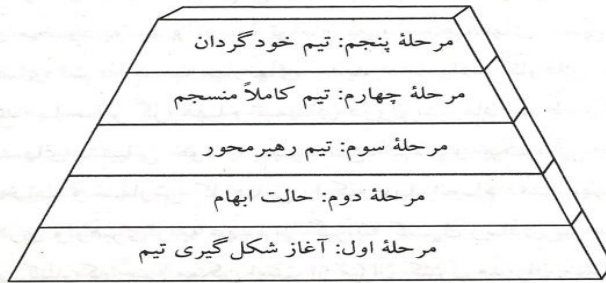 مرحلهٔ پنجم: تیم خودگردان
مرحلهٔ چهارم: تیم کاملاً منسجم
مرحلهٔ سوم: تیم رهبرمحور
مرحلهٔ دوم: حالت ابهام
مرحلهٔ اول: آغاز شکل‌گیری تیم